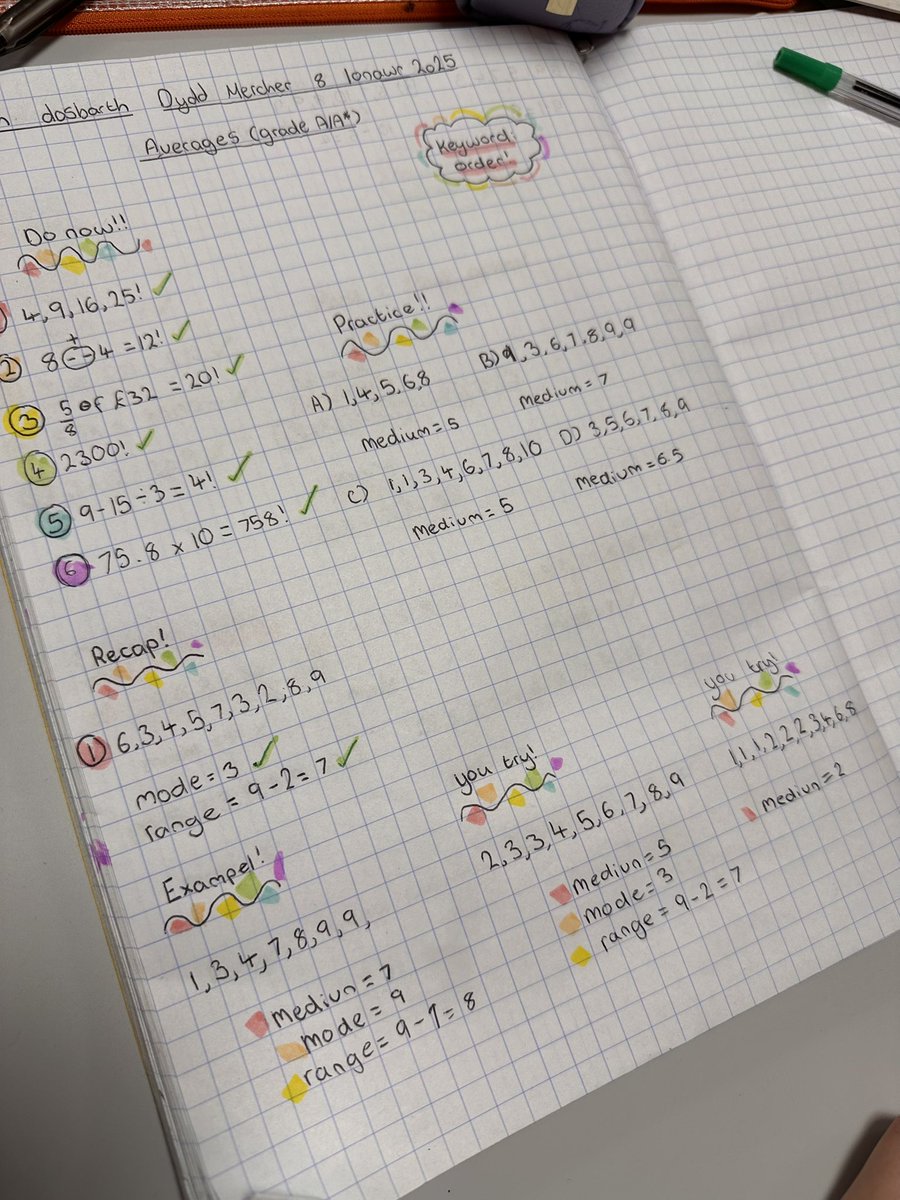 dosbarth Dydd Mercher 8 Ionawr 2025
Averages (grade A/A*)
Keyword:
order!
Do now!!
4, 9, 16, 25! ✓
2 8 + 4 = 12! ✓
3 5/8 of £32 = 20! ✓
4 2300! ✓
5 9 - 15 ÷ 3 = 4! ✓
6 75.8 × 10 = 758! ✓
Practice!!
A) 1, 4, 5, 6, 8
medium = 5
B) 1, 3, 6, 7, 8, 9, 9
medium = 7
C) 1, 1, 3, 4, 6, 7, 8, 10
medium = 5
D) 3, 5, 6, 7, 8, 9
medium = 6.5
Recap!
1 6, 3, 4, 5, 7, 3, 2, 8, 9
mode = 3 ✓
range = 9 - 2 = 7 ✓
Exampel!
1, 3, 4, 7, 8, 9, 9,
mediun = 7
mode = 9
range = 9 - 1 = 8
you try!
2, 3, 3, 4, 5, 6, 7, 8, 9
mediun = 5
mode = 3
range = 9 - 2 = 7
you try!
1, 1, 1, 2, 2, 2, 3, 4, 6, 8
mediun = 2